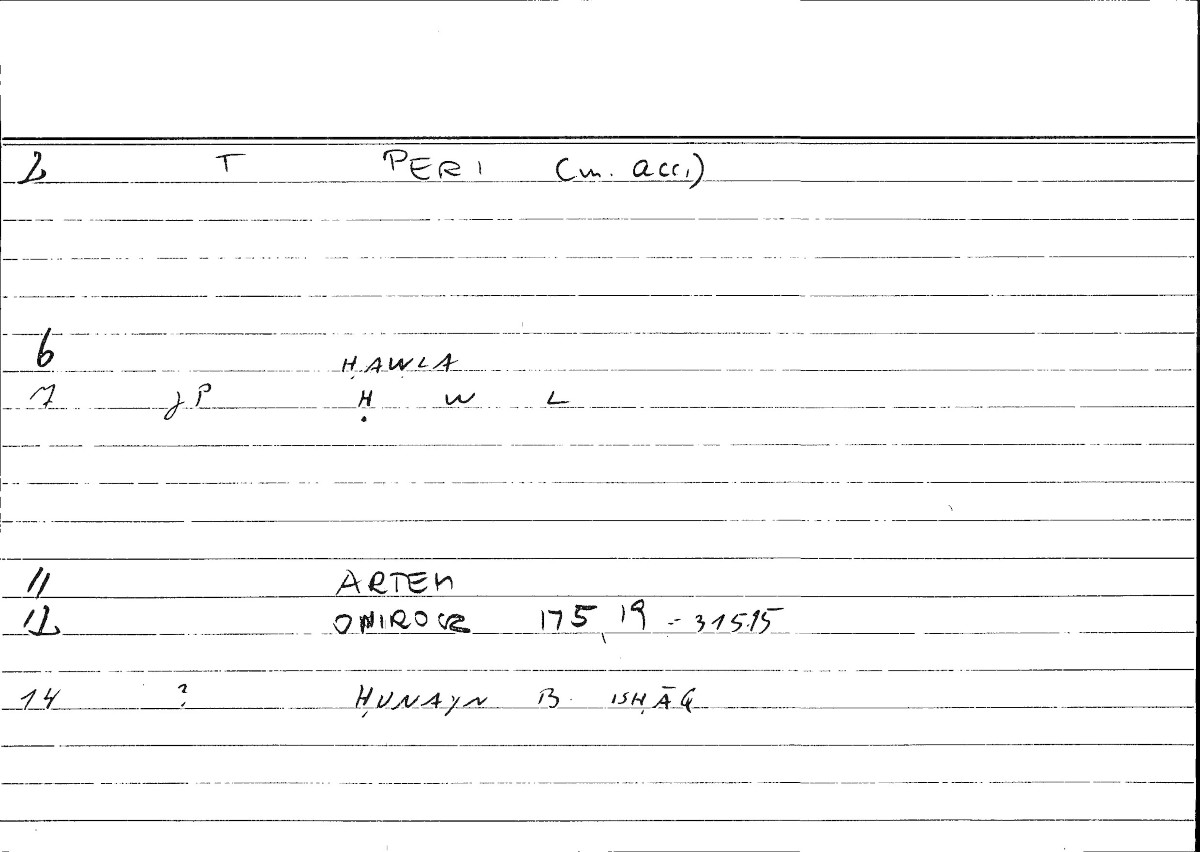 2 T PERI (m. acc.)
6 ḤAWLA
7 JP Ḥ W L
11 ARTEM
12 ONIROCR 175,19 = 315.15
14 ? ḤUNAYN B. ISḤĀQ